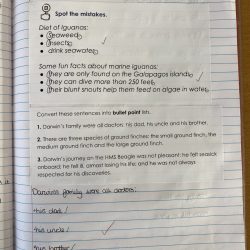 Spot the mistakes.
Diet of Iguanas:
• Seaweed
• Insects
• drink seawater
Some fun facts about marine iguanas:
• they are only found on the Galapagos islands
• they can dive more than 250 feet
• their blunt snouts help them feed on algae in water
Convert these sentences into bullet point lists.
1. Darwin's family were all doctors: his dad, his uncle and his brother.
2. There are three species of ground finches: the small ground finch, the
medium ground finch and the large ground finch.
3. Darwin's journey on the HMS Beagle was not pleasant: he felt seasick
onboard; he fell ill, almost losing his life; and he was not always
respected for his discoveries.
Darwins family were all doctors:
his dad
his uncle
his brother